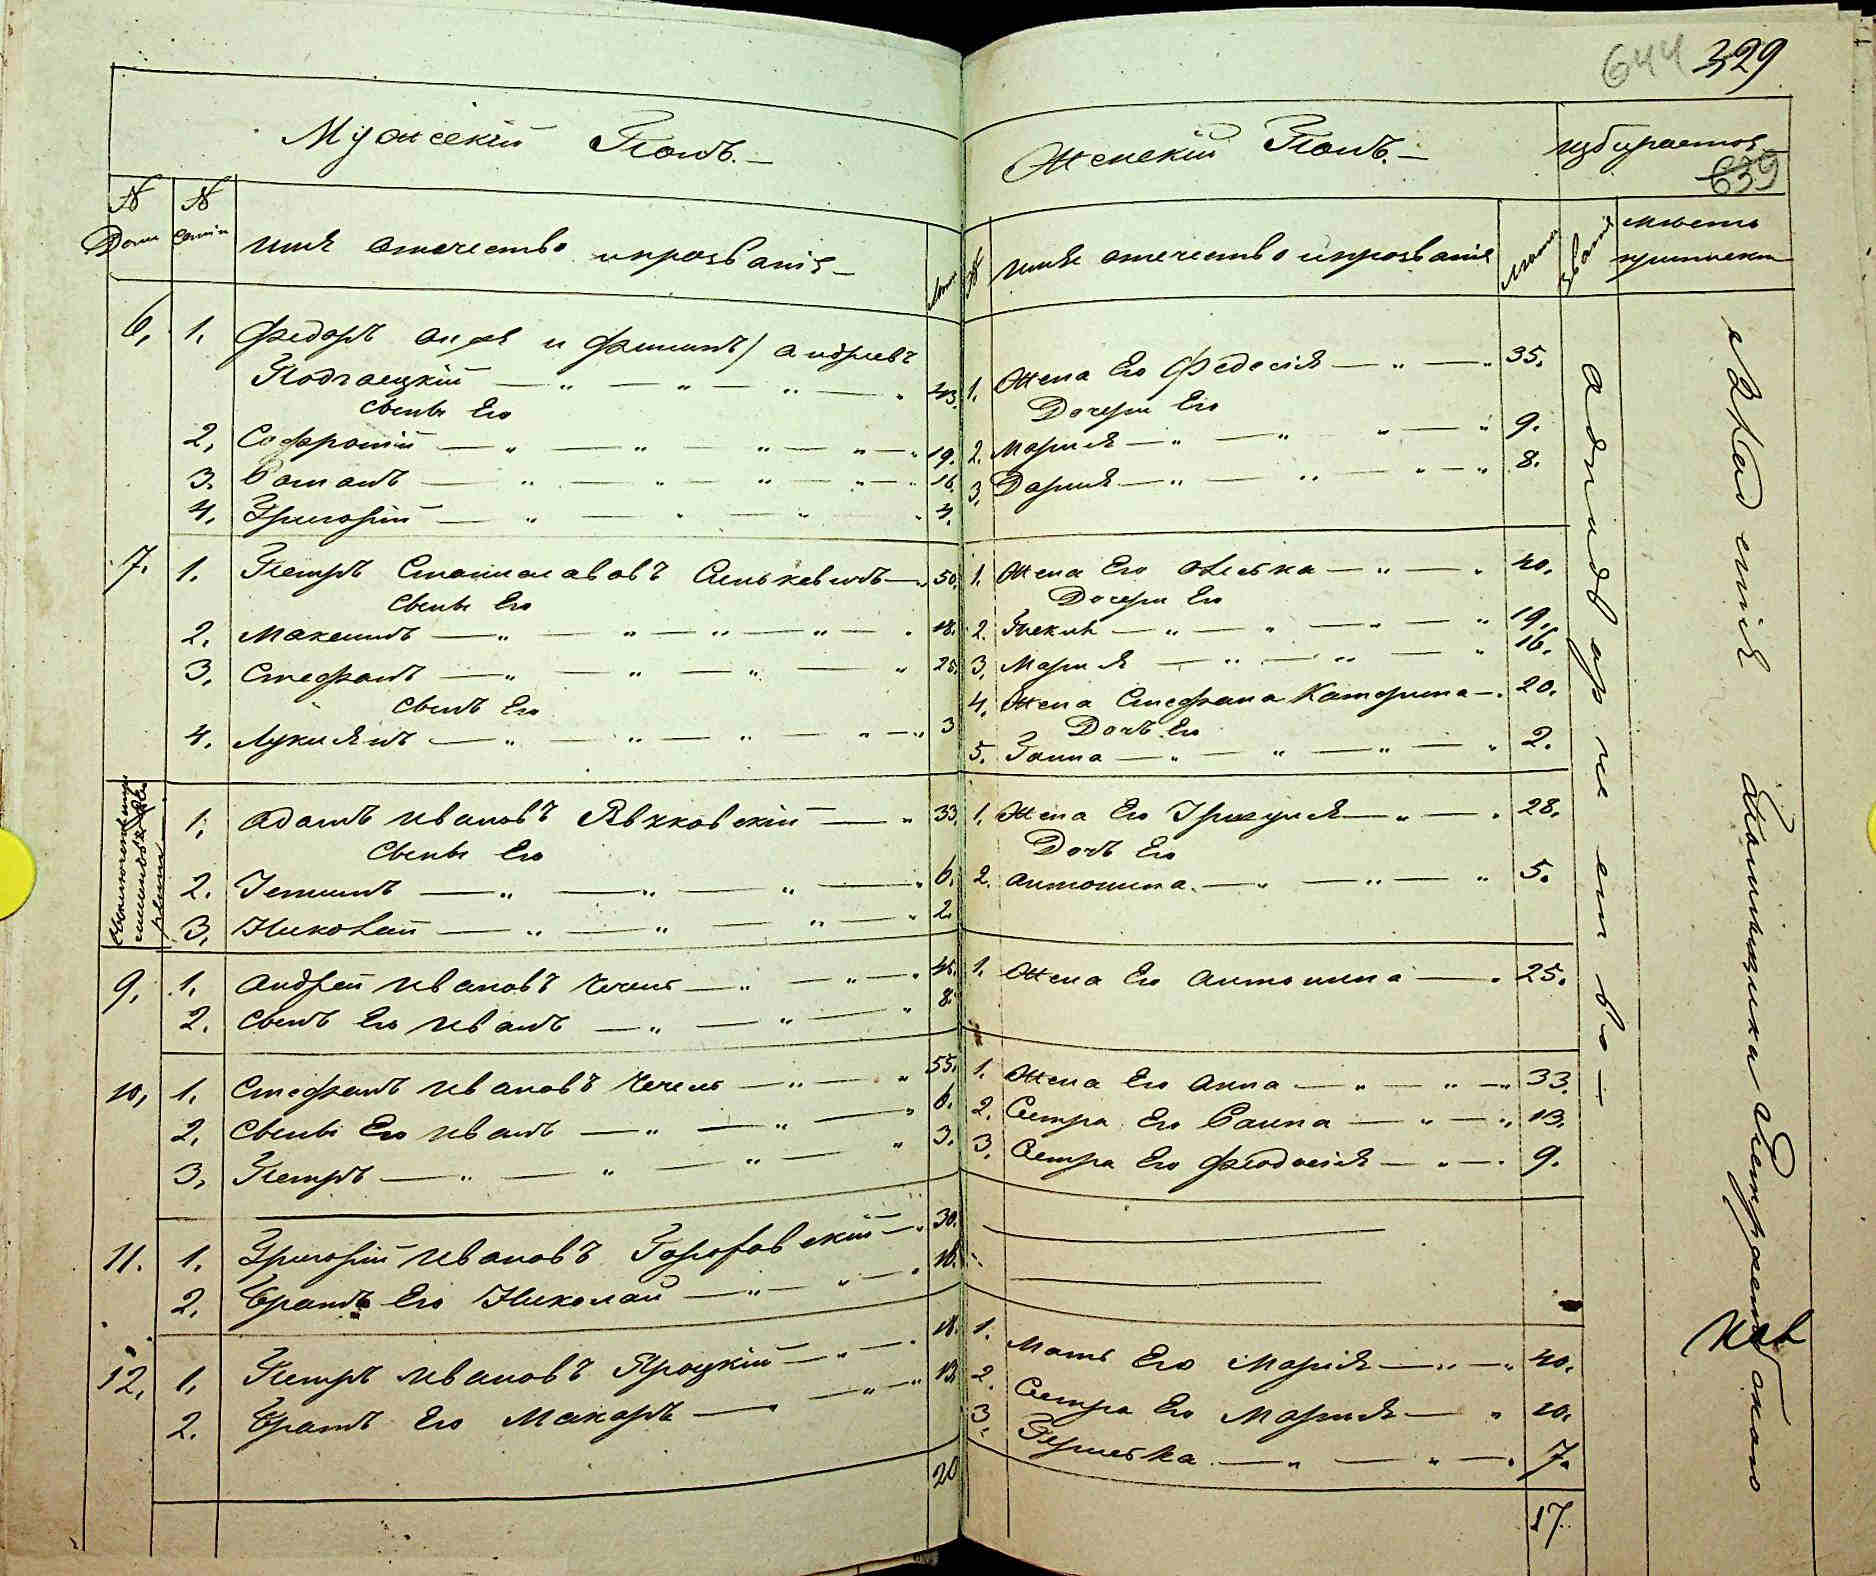 644 329
Мужескій Полъ.
Женскій Полъ.
избирается
639
№ Дома
№ Семьи
имя отечество и прозваніе
Лета
№
имя отечество и прозваніе
лета
званіе
место приписки
6. 1. Федоръ онъ же и Филипъ) андриевъ
Подгаецкій 43.
сыны Его
2. Софроній 19.
3. Романъ 16.
4. Григорій 4.
1. Жена Его Федосія 35.
Дочери Его
2. Марія 9.
3. Дарія 8.
7. 1. Петръ Станиславовъ Синькевичъ 50.
сыны Его
2. Максимъ 18.
3. Стефанъ 25.
сынъ Его
4. Лукиянъ 3
1. Жена Его Олеска 40.
Дочери Его
2. Текля 19.
3. Марія 16.
4. Жена Стефана Катерина 20.
Дочь Его
5. Ганна 2.
1. Адамъ Ивановъ Явкковскій 33.
сыны Его
2. Устинъ 6.
3. Николай 2.
1. Жена Его 28.
Дочь Его
2. антонина 5.
9. 1. андрей Ивановъ Чечель 45.
2. сынъ Его Иванъ 8.
1. Жена Его антонина 25.
10. 1. Стефанъ Ивановъ Чечель 55.
2. сыны Его Иванъ 6.
3. Петръ 3.
1. Жена Его анна 33.
2. Сестра Его Ганна 13.
3. Сестра Его Феодосія 9.
11. 1. Григорій Ивановъ 30.
2. Братъ Его Николай 18.
12. 1. Петръ Ивановъ Яроцкій 18.
2. Братъ Его Макаръ 13.
20
1. Мать Его Марія 40.
2. Сестра Его Марія 10.
3. 7.
17.
однодворчество
Владенія Помещика Пепревскаго